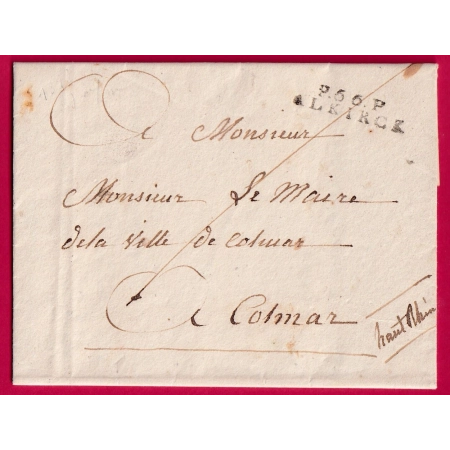 P.66.P
ALKIRCK
A Monsieur
Monsieur Le Maire
dela Ville de Colmar
A Colmar
haut Rhin